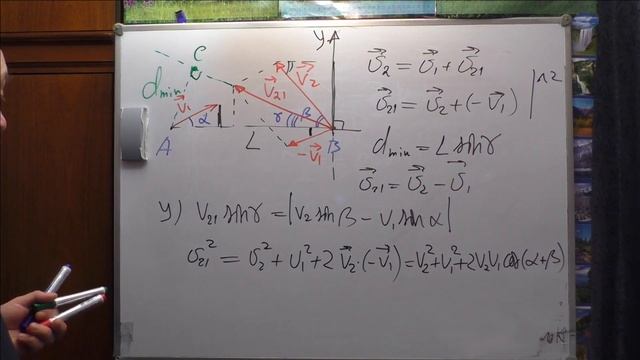 y
C
d_min
v⃗₁
α
A
L
v⃗₂₁
v⃗₂
γ
β
-v⃗₁
B
v⃗₂ = v⃗₁ + v⃗₂₁
v⃗₂₁ = v⃗₂ + (-v⃗₁) |^2
d_min = L sinγ
v⃗₂₁ = v⃗₂ - v⃗₁
y) v₂₁ sinγ = |v₂ sinβ - v₁ sinα|
v₂₁² = v₂² + v₁² + 2 v⃗₂·(-v⃗₁) = v₂² + v₁² + 2v₂v₁ cos(α+β)